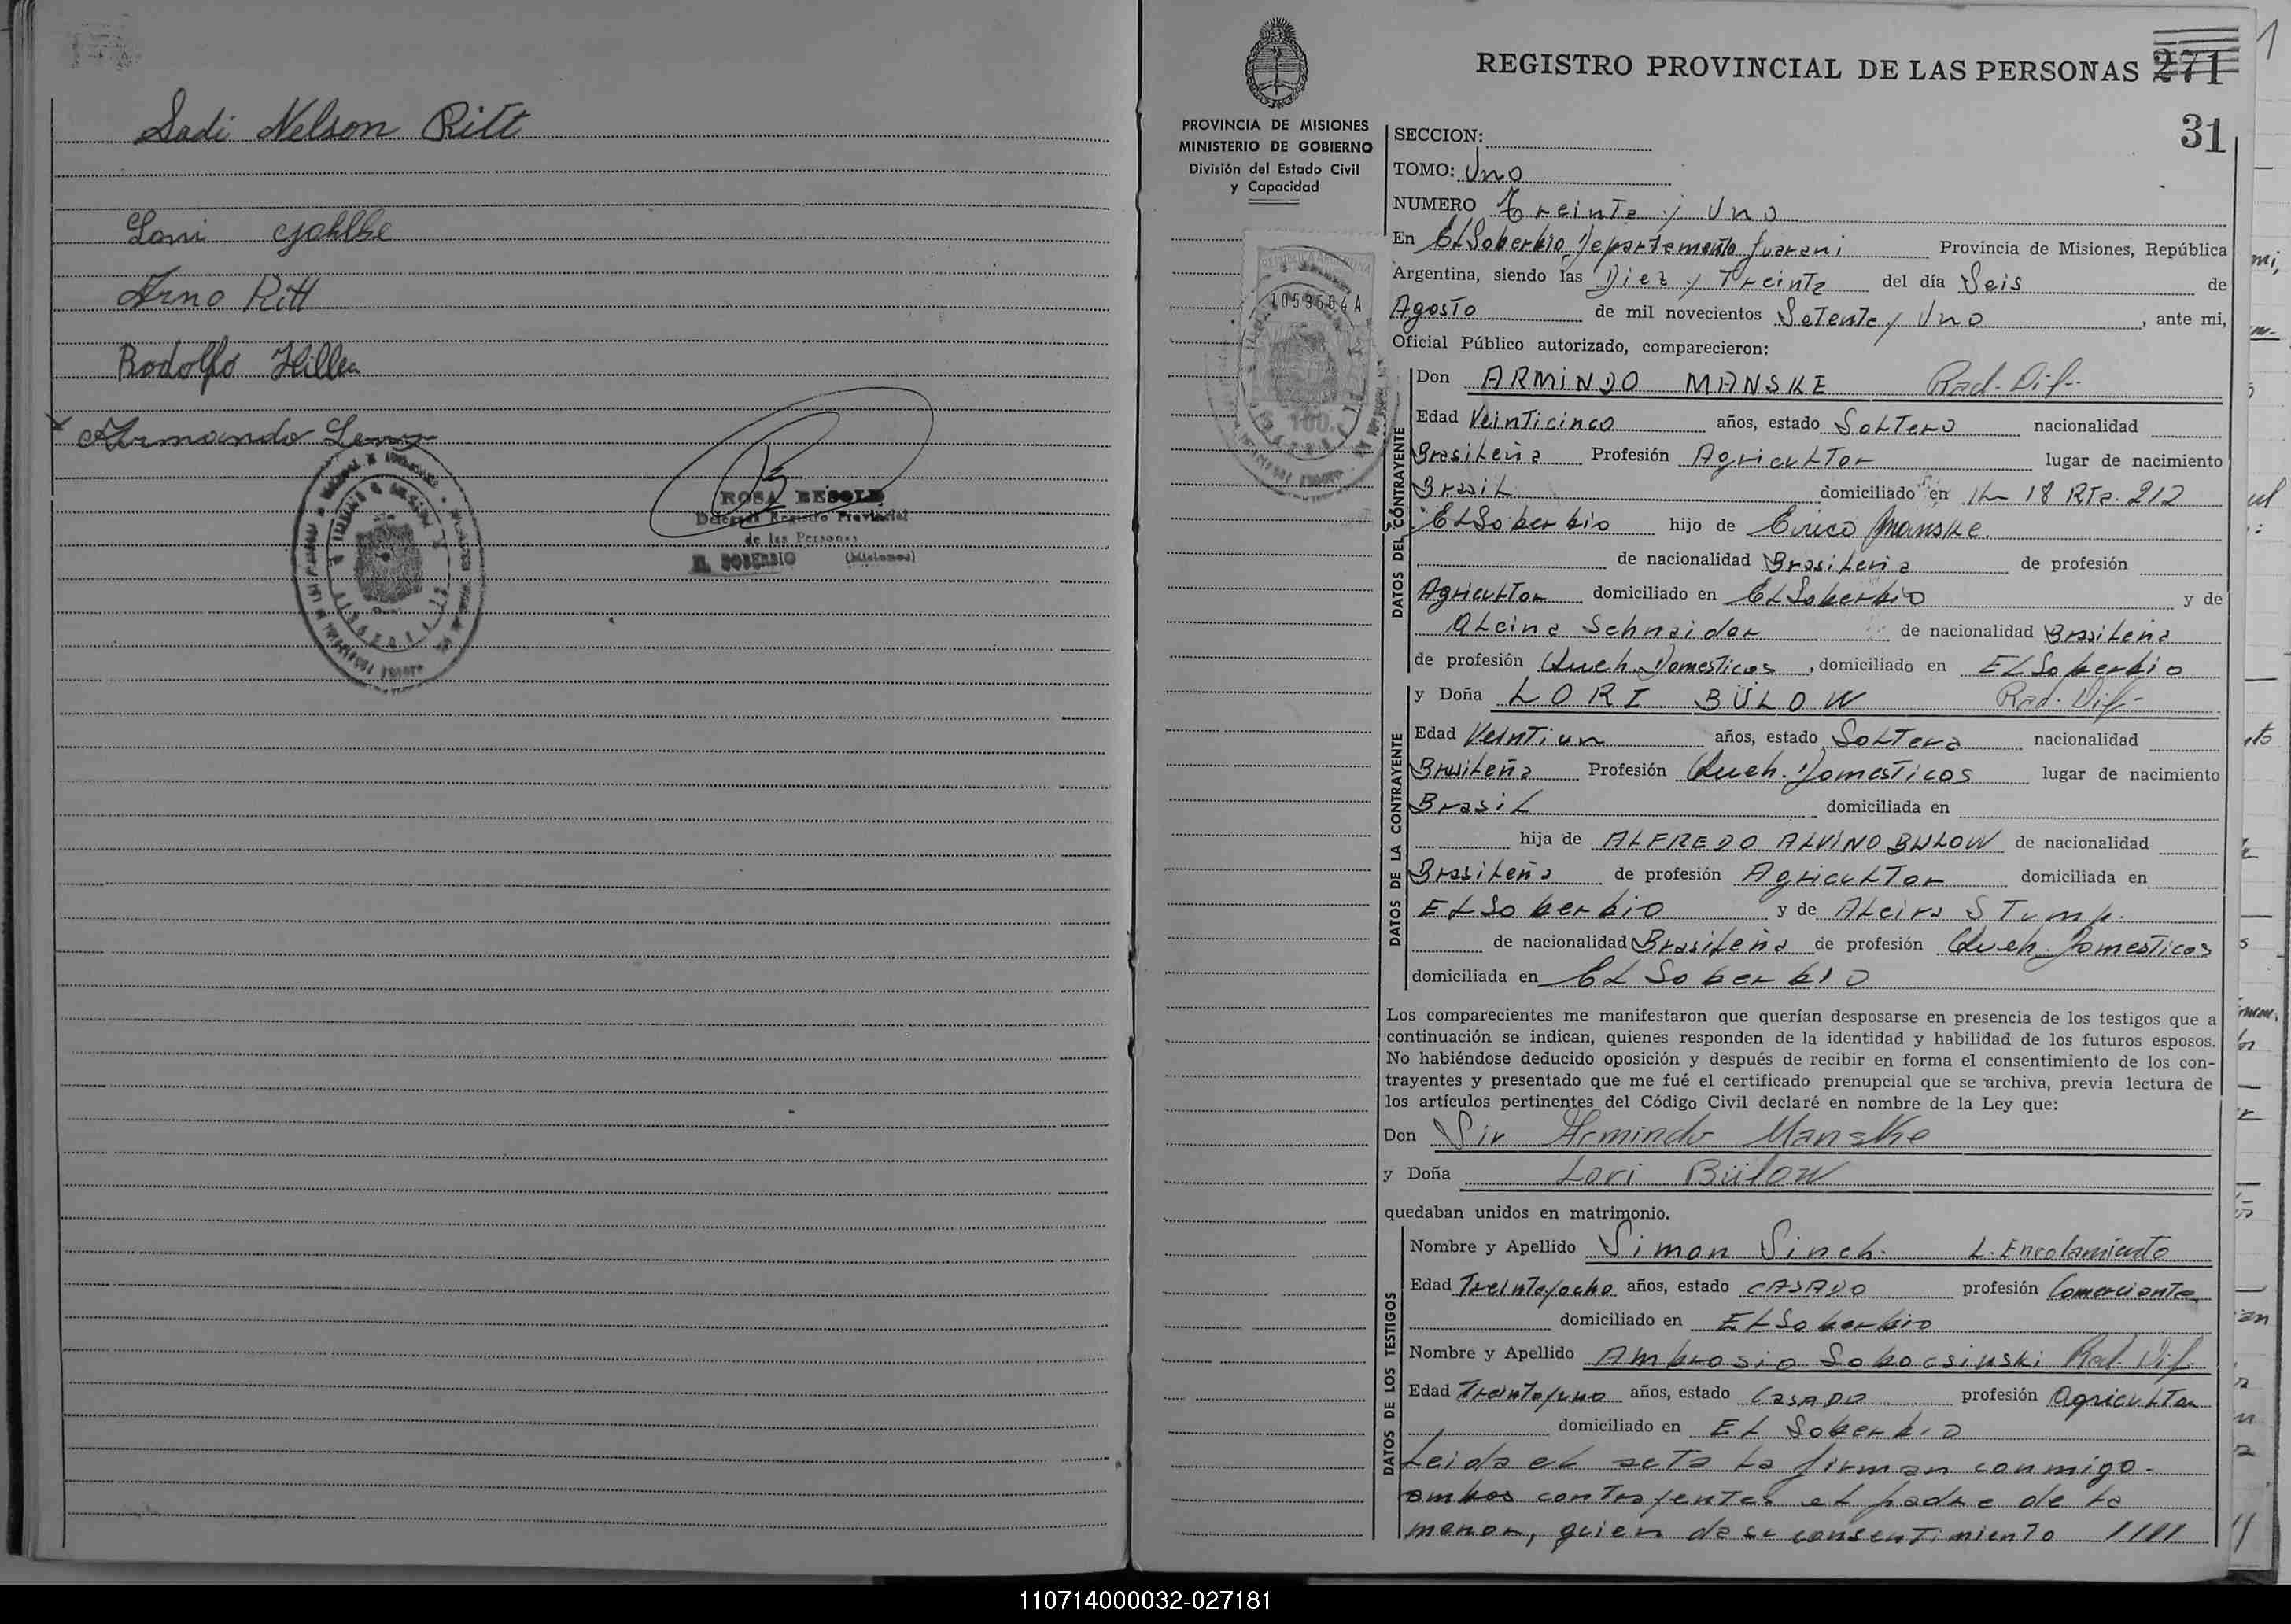 Sadi Nelson Ritt
Loni Gohlke
Arno Ritt
Rodolfo Hiller
Armando Leny
ROSA BESOLD
Delegada Registro Provincial
de las Personas
EL SOBERBIO (Misiones)
REGISTRO PROVINCIAL DE LAS PERSONAS 271
1
31
PROVINCIA DE MISIONES
MINISTERIO DE GOBIERNO
División del Estado Civil
y Capacidad
SECCION:
TOMO: Uno
NUMERO Treinta y Uno
En El Soberbio, Departamento Guarani Provincia de Misiones, República
Argentina, siendo las Diez y Treinta del día Seis de
Agosto de mil novecientos Setenta y Uno, ante mi,
Oficial Público autorizado, comparecieron:
DATOS DEL CONTRAYENTE
Don ARMINDO MANSKE Rad. Dif.-
Edad Veinticinco años, estado Soltero nacionalidad
Brasileña Profesión Agricultor lugar de nacimiento
Brasil domiciliado en Km 18 Rta. 212
El Soberbio hijo de Erico Manske.
de nacionalidad Brasileña de profesión
Agricultor domiciliado en El Soberbio y de
Alcina Schnaider de nacionalidad Brasileña
de profesión Queh. Domesticos, domiciliado en El Soberbio
DATOS DE LA CONTRAYENTE
y Doña LORI BÜLOW Rad. Dif-
Edad Veintiun años, estado Soltera nacionalidad
Brasileña Profesión Queh. Domesticos lugar de nacimiento
Brasil domiciliada en
hija de ALFREDO ALVINO BULOW de nacionalidad
Brasileña de profesión Agricultor domiciliada en
El Soberbio y de Alcira Stump.
de nacionalidad Brasileña de profesión Queh. Domesticos
domiciliada en El Soberbio
Los comparecientes me manifestaron que querían desposarse en presencia de los testigos que a
continuación se indican, quienes responden de la identidad y habilidad de los futuros esposos.
No habiéndose deducido oposición y después de recibir en forma el consentimiento de los con-
trayentes y presentado que me fué el certificado prenupcial que se archiva, previa lectura de
los artículos pertinentes del Código Civil declaré en nombre de la Ley que:
Don Sir Armindo Manske
y Doña Lori Bülow
quedaban unidos en matrimonio.
DATOS DE LOS TESTIGOS
Nombre y Apellido Simon Sinch. L. Enrolamiento
Edad Treinta y ocho años, estado CASADO profesión Comerciante
domiciliado en El Soberbio
Nombre y Apellido Ambrosio Sobocsinski Rad. Dif.
Edad Treinta y uno años, estado Casado profesión Agricultor
domiciliado en El Soberbio
Leida el acta la firman conmigo
ambos contrayentes el padre de la
menor, quien da su consentimiento
110714000032-027181